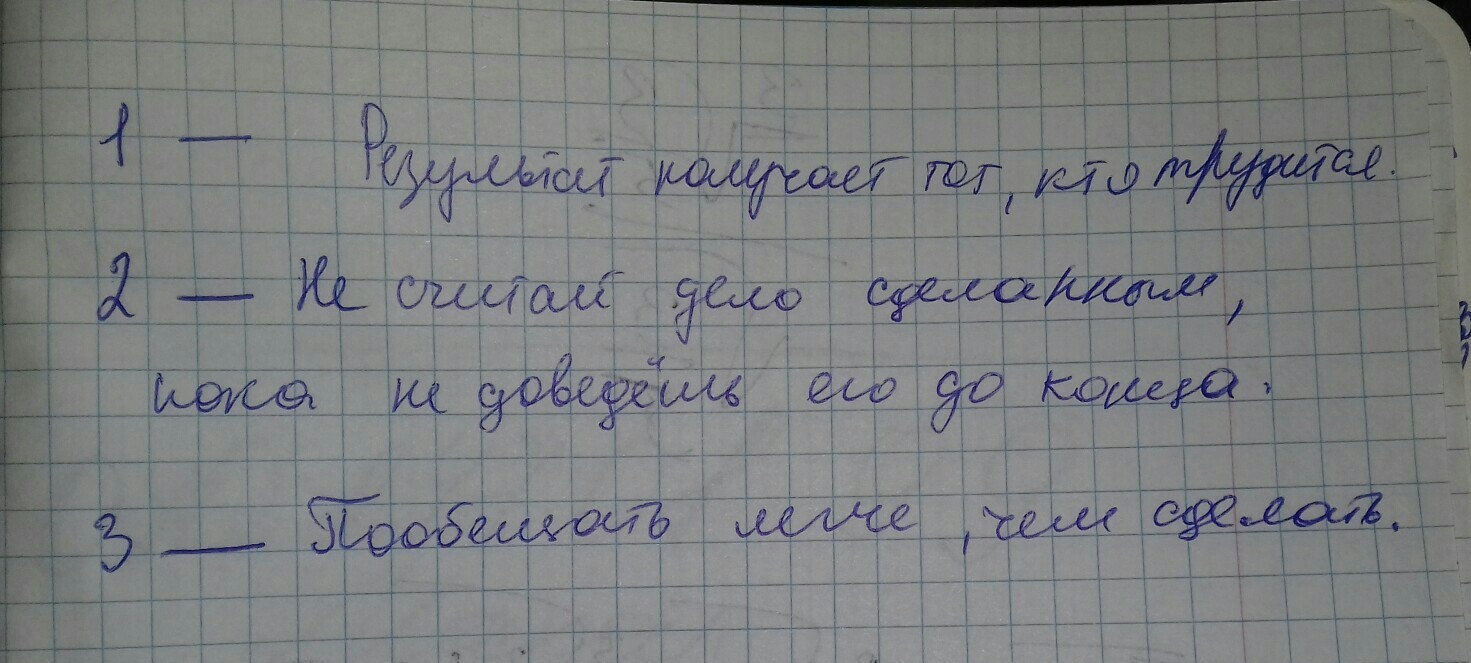 1 — Результат получает тот, кто трудится.
2 — Не считай дело сделанным,
пока не доведёшь его до конца.
3 — Пообещать легче, чем сделать.